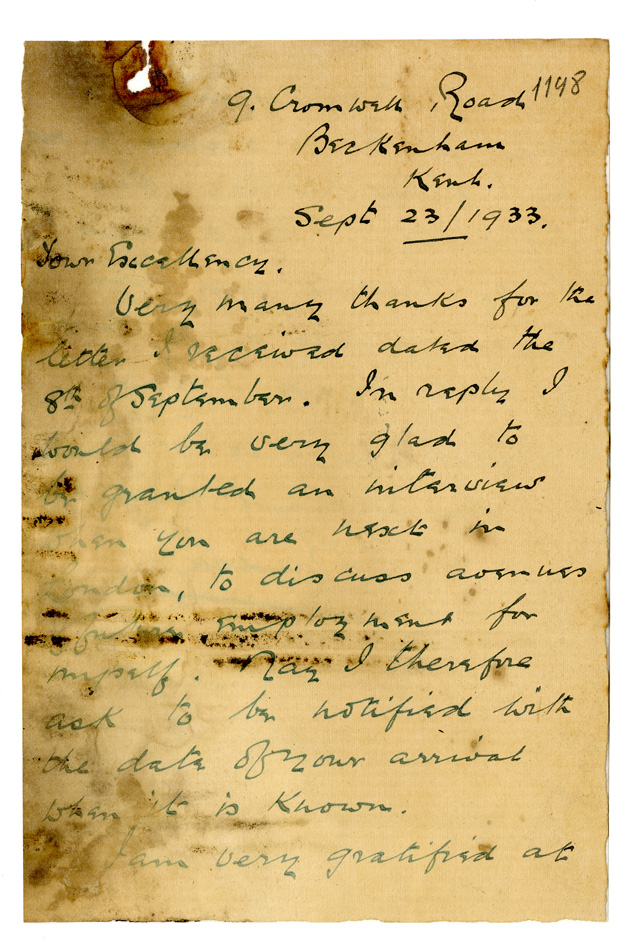 1198
9. Cromwell Road
Beckenham
Kent.
Sept 23/1933.
Your Excellency.
Very many thanks for the
letter I received dated the
8th of September. In reply I
would be very glad to
be granted an interview
when you are next in
London, to discuss avenues
of future employment for
myself. May I therefore
ask to be notified with
the date of your arrival
when it is known.
I am very gratified at